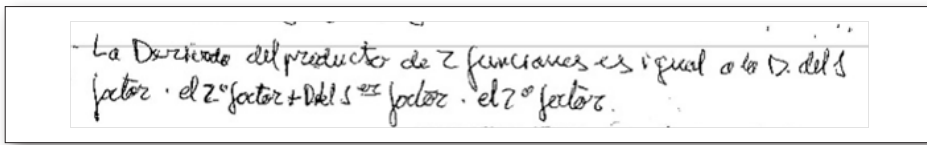 - La Derivada del producto de 2 funciones es igual a la D. del 1
factor . el 2º factor + D del 1 er factor . el 2º factor.